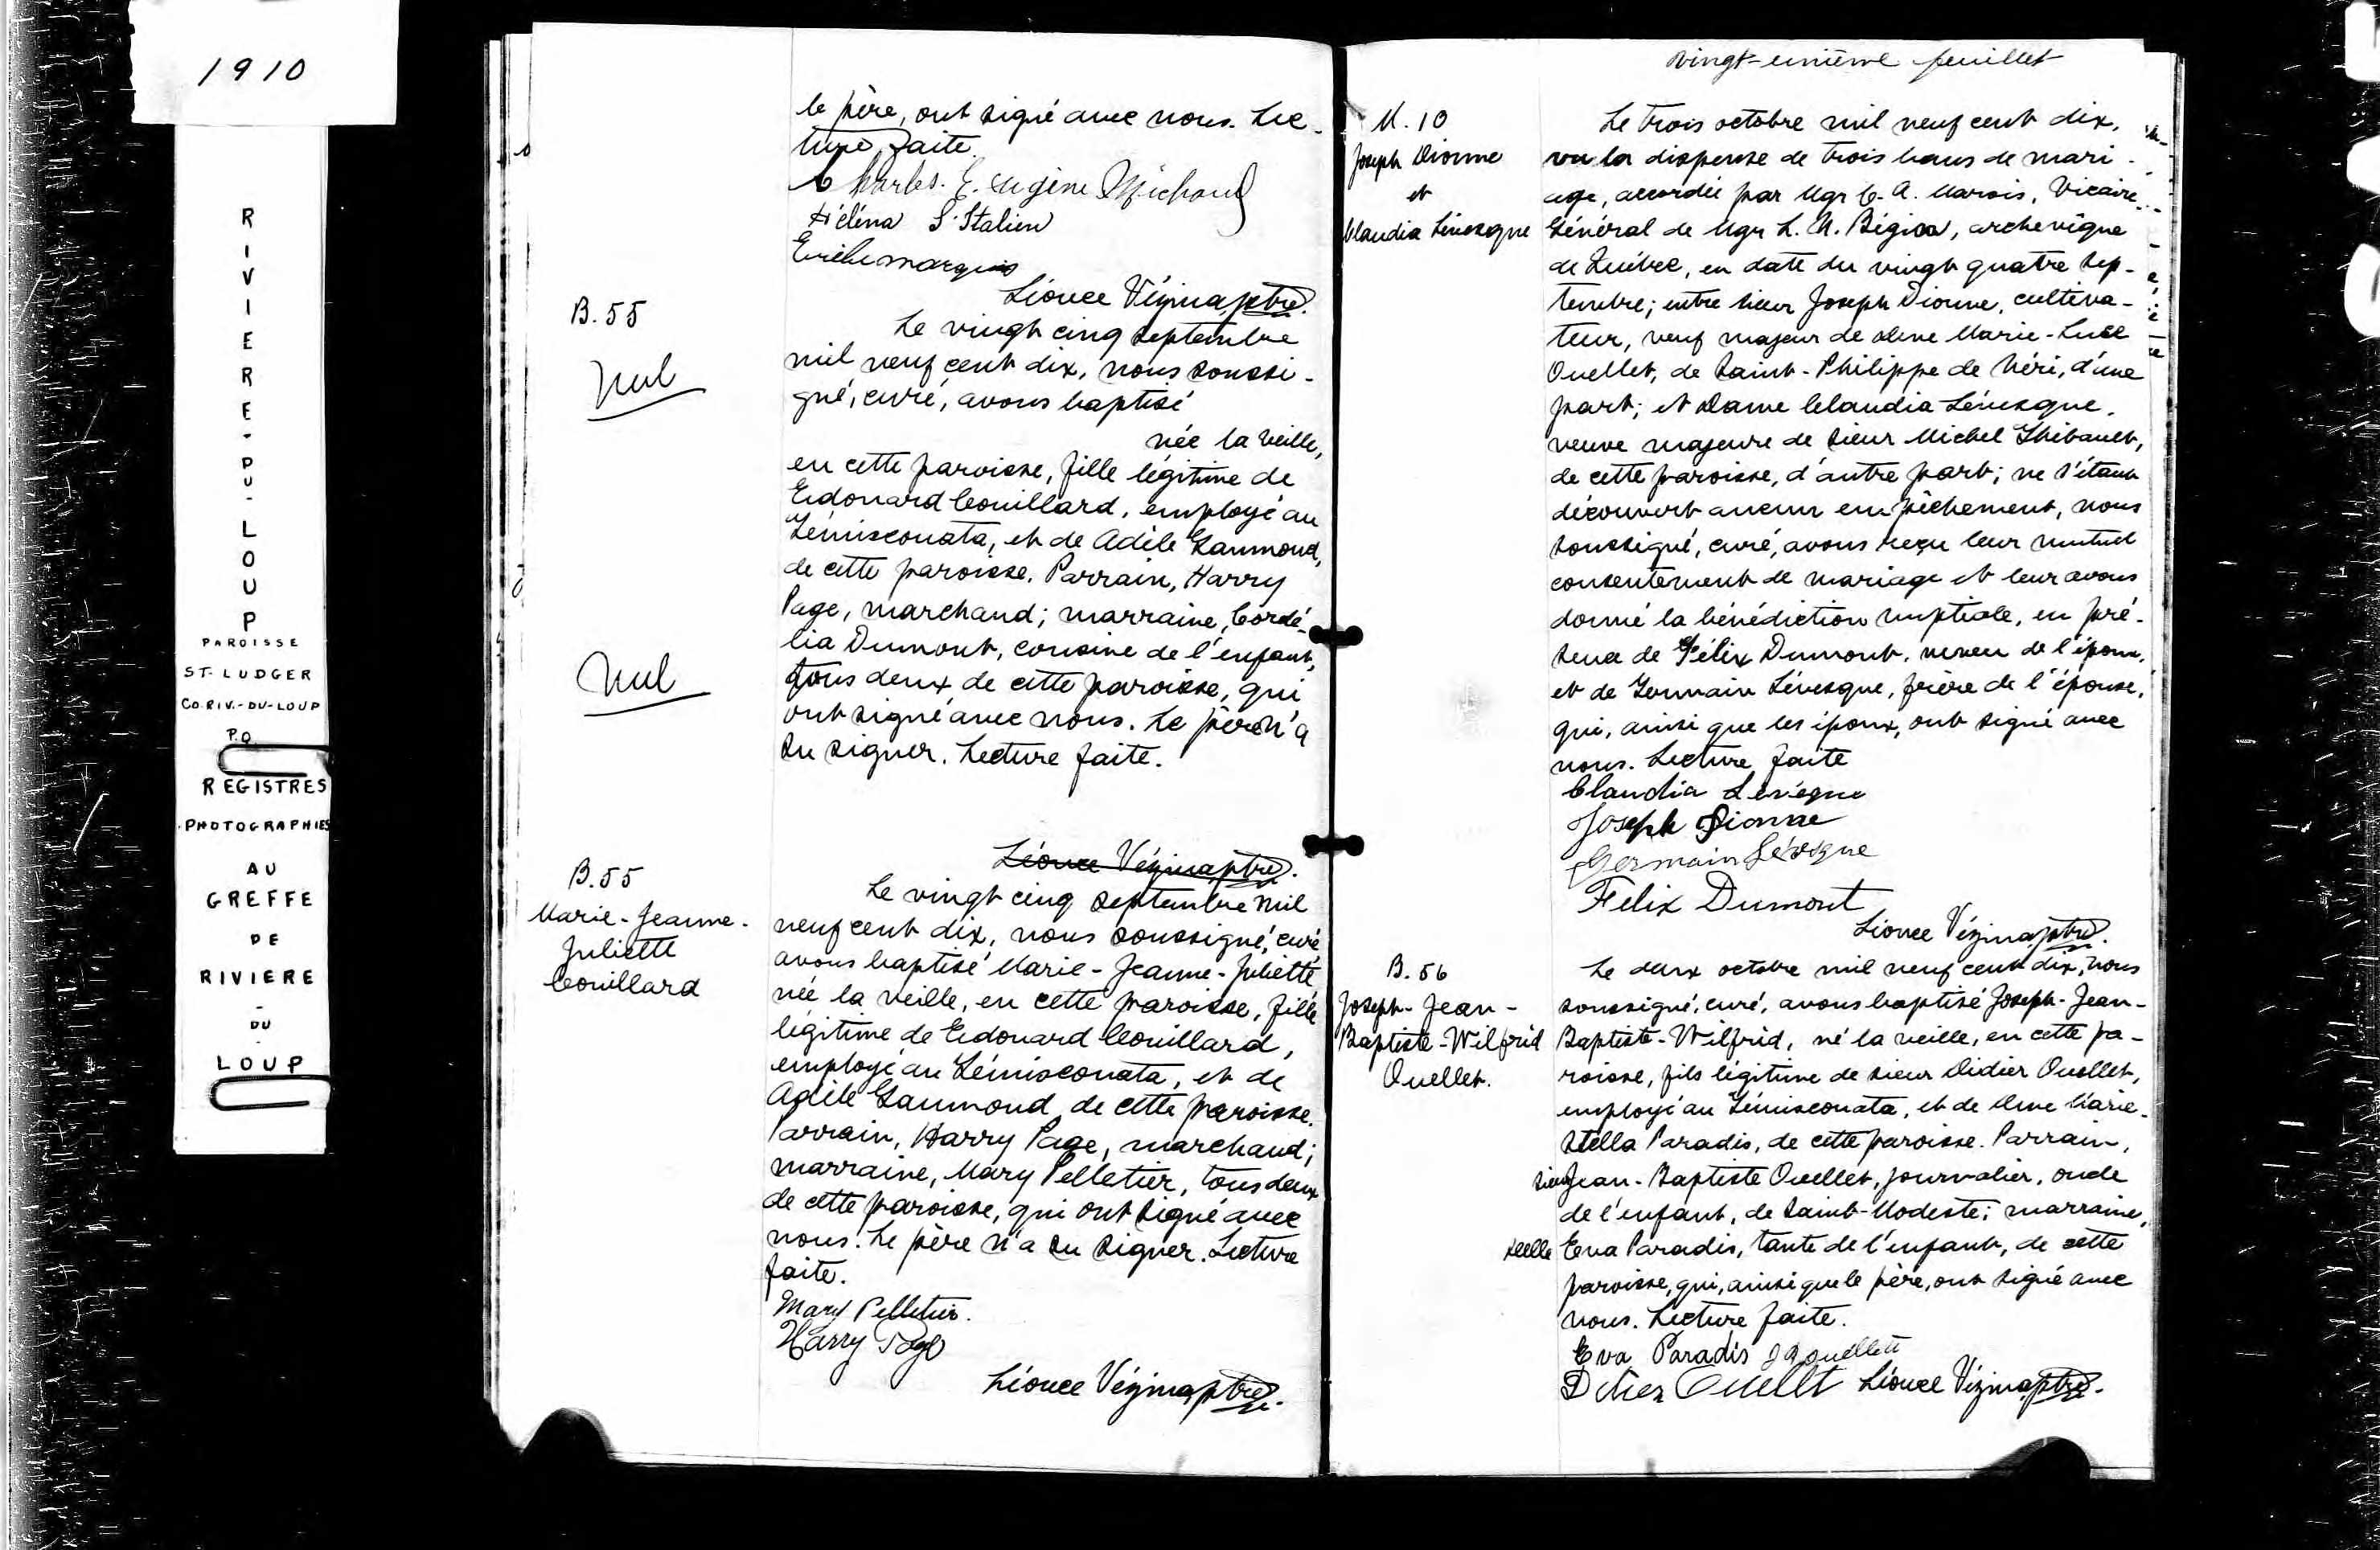 1910
RIVIERE-DU-LOUP
PAROISSE
ST-LUDGER
CO.RIV.-DU-LOUP
P.Q.
REGISTRES
PHOTOGRAPHIES
AU
GREFFE
DE
RIVIERE
-
DU
-
LOUP
le père, ont signé avec nous. Lec-
ture faite.
Charles. E. Eugène Michaud
Héléna St Italien
Emile Marquis
Léonce Vézina, ptre.
B.55
Nul
Le vingt cinq septembre
mil neuf cent dix, nous soussi-
gné, curé, avons baptisé
née la veille,
en cette paroisse, fille légitime de
Edouard Couillard, employé au
Témisconata, et de Adèle Gaumond,
de cette paroisse. Parrain, Harry
Page, marchand; marraine, Cordé-
lia Dumont, cousine de l'enfant,
Nul
tous deux de cette paroisse, qui
ont signé avec nous. Le père n'a
su signer. Lecture faite.
Léonce Vézina, ptre.
B.55
Marie-Jeanne-
Juliette
Couillard
Le vingt cinq septembre mil
neuf cent dix, nous soussigné, curé
avons baptisé Marie-Jeanne-Juliette
née la veille, en cette paroisse, fille
légitime de Edouard Couillard,
employé au Témisconata, et de
Adèle Gaumond, de cette paroisse.
Parrain, Harry Page, marchand;
marraine, Mary Pelletier, tous deux
de cette paroisse, qui ont signé avec
nous. Le père n'a su signer. Lecture
faite.
Mary Pelletier.
Harry Page
Léonce Vézina, ptre.
vingt-unième feuillet
M. 10
Joseph Dionne
et
Claudia Lévesque
Le trois octobre mil neuf cent dix,
vu la dispense de trois bans de mari-
age, accordée par Mgr C. A. Marois, Vicaire-
Général de Mgr L. N. Bégin, archevêque
de Québec, en date du vingt quatre sep-
tembre; entre sieur Joseph Dionne, cultiva-
teur, veuf majeur de Dme Marie-Luce
Ouellet, de Saint-Philippe de Néri, d'une
part; et Dame Claudia Lévesque,
veuve majeure de sieur Michel Thibault,
de cette paroisse, d'autre part; ne s'étant
découvert aucun empêchement, nous
soussigné, curé, avons reçu leur mutuel
consentement de mariage et leur avons
donné la bénédiction nuptiale, en pré-
sence de Félix Dumont, neveu de l'époux,
et de Germain Lévesque, frère de l'épouse,
qui, ainsi que les époux, ont signé avec
nous. Lecture faite
Claudia Levéque
Joseph Dionne
Germain Lévesque
Felix Dumont
Léonce Vézina, ptre.
B. 56
Joseph-Jean-
Baptiste-Wilfrid
Ouellet.
Le deux octobre mil neuf cent dix, nous
soussigné, curé, avons baptisé Joseph-Jean-
Baptiste-Wilfrid, né la veille, en cette pa-
roisse, fils légitime de sieur Didier Ouellet,
employé au Témisconata, et de Dme Marie-
Stella Paradis, de cette paroisse. Parrain,
sieur Jean-Baptiste Ouellet, journalier, oncle
de l'enfant, de Saint-Modeste; marraine,
delle Eva Paradis, tante de l'enfant, de cette
paroisse, qui, ainsi que le père, ont signé avec
nous. Lecture faite.
Eva Paradis J B Ouellett
Ouellet Léonce Vézina, ptre.